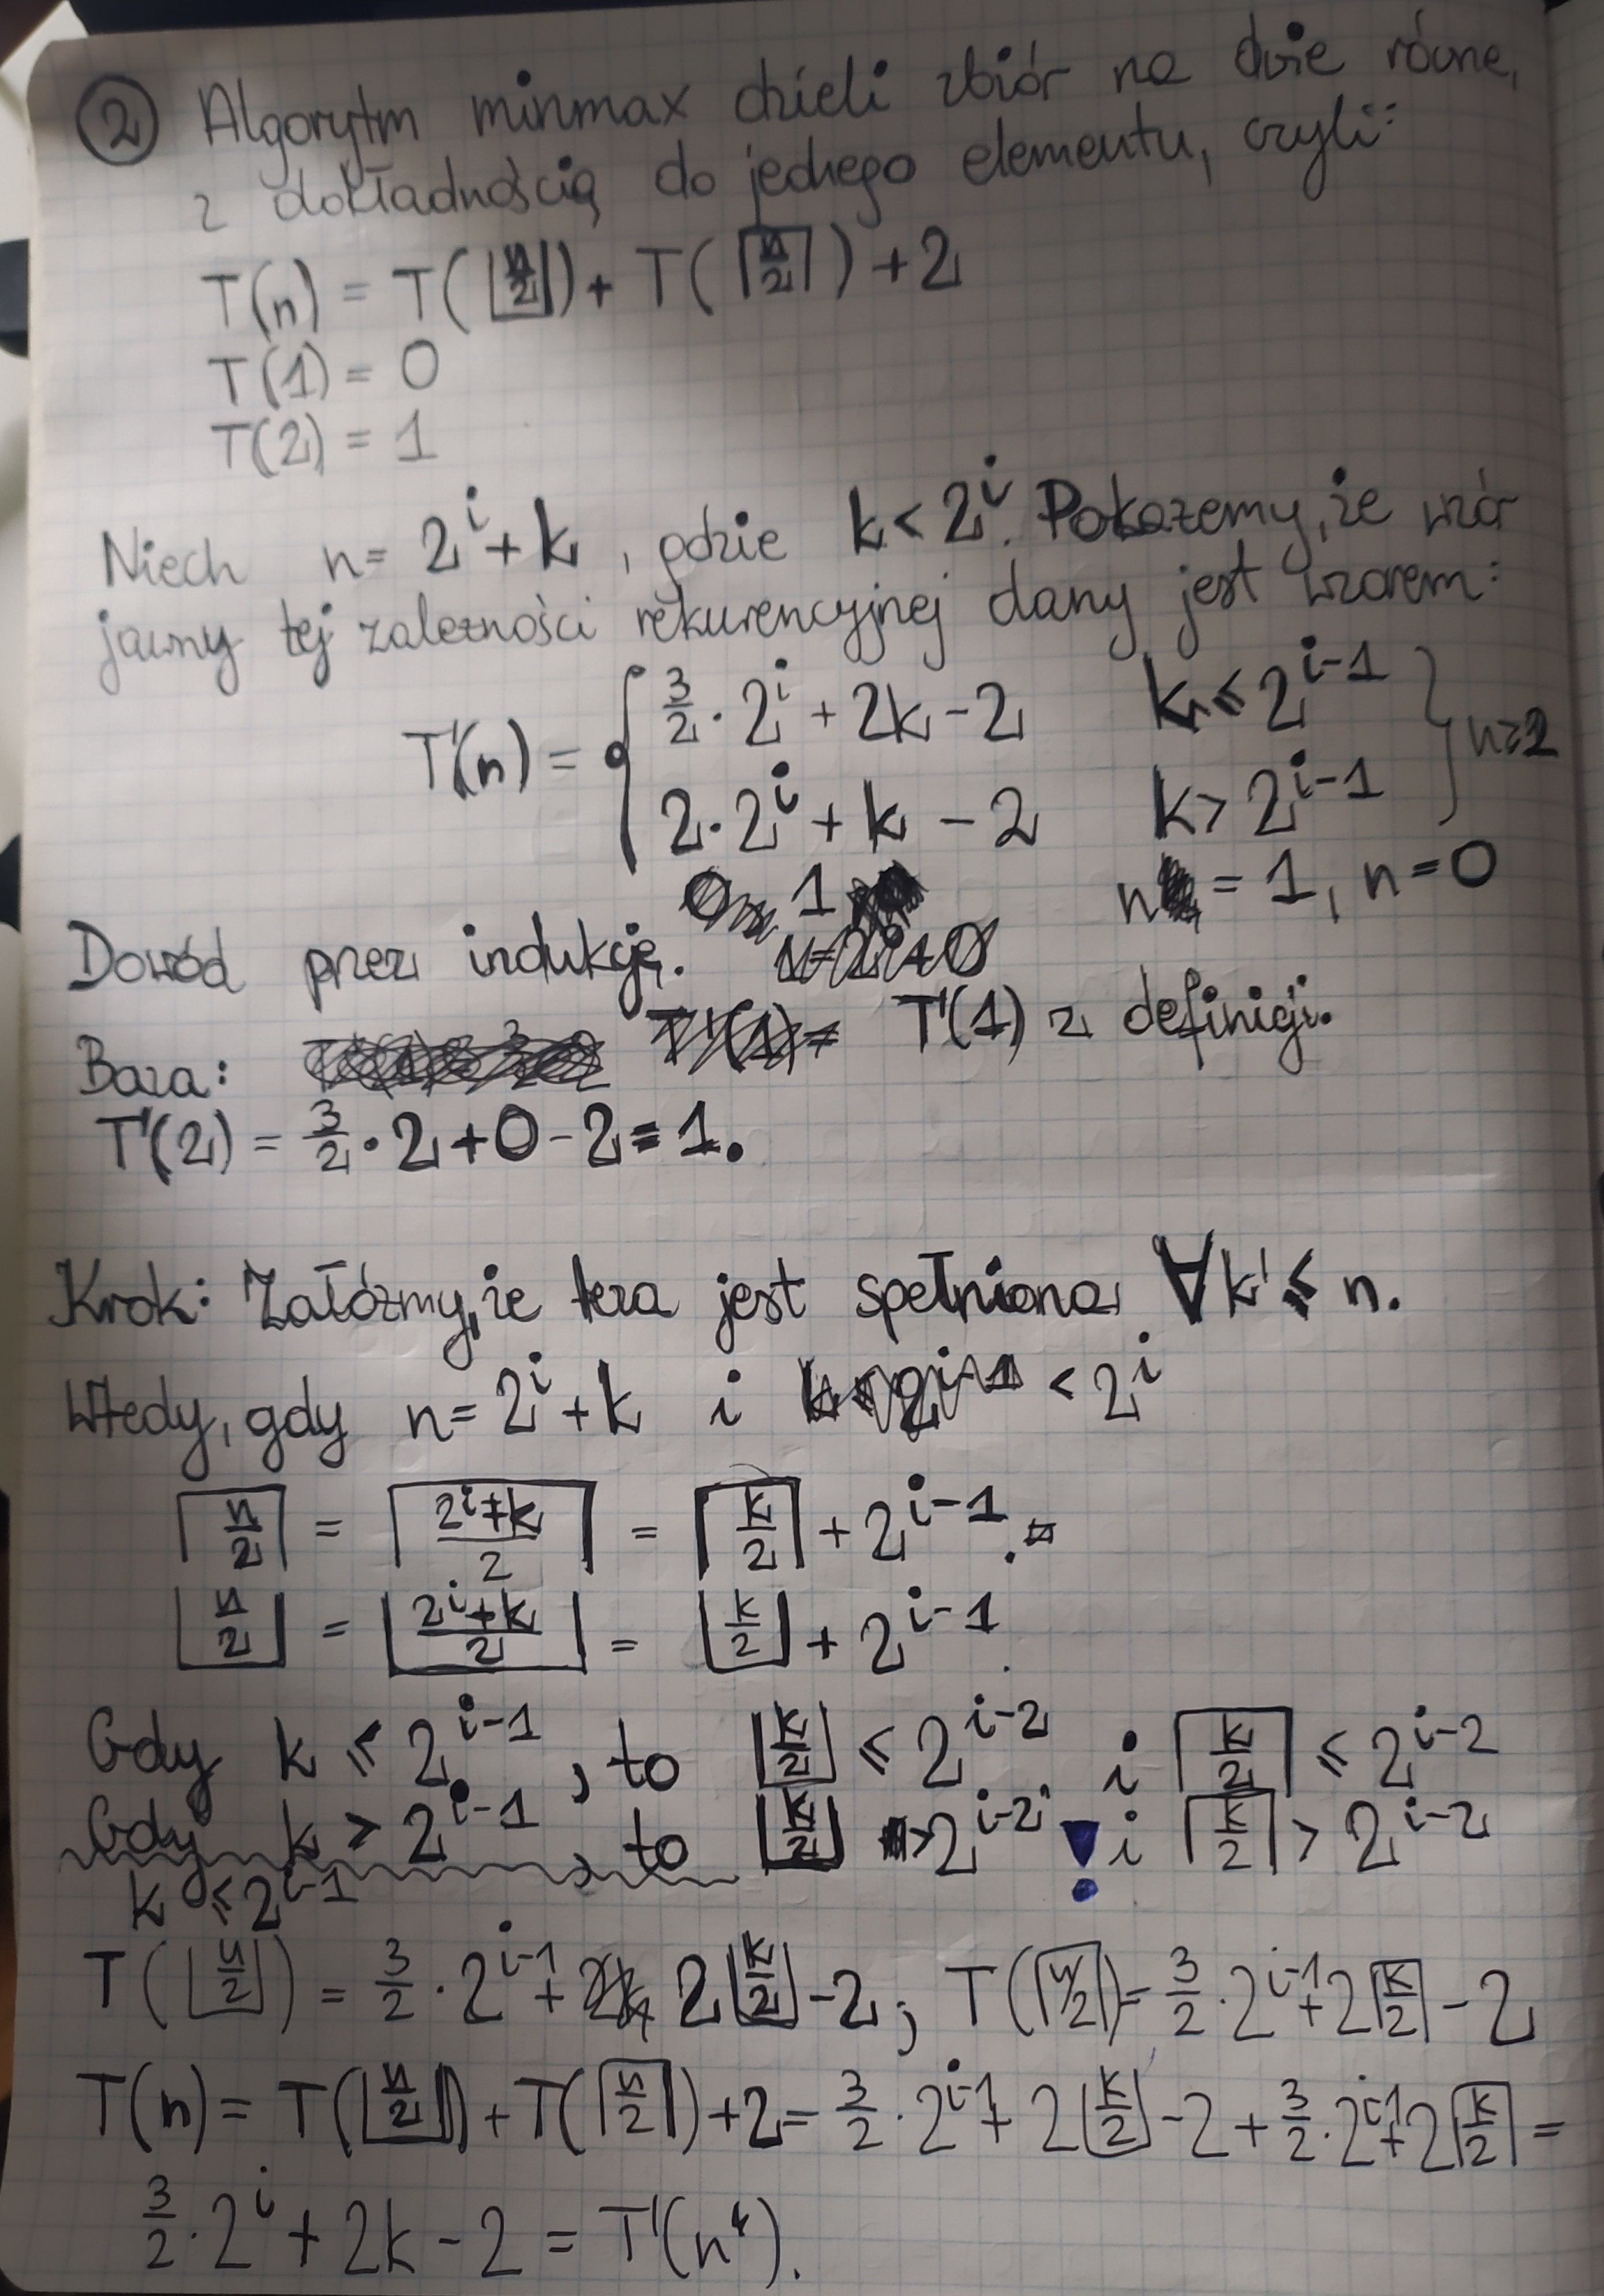 ② Algorytm minmax dzieli zbiór na dwie równe,
z dokładnością do jednego elementu, czyli:
T(n) = T(⌊n/2⌋) + T(⌈n/2⌉) + 2
T(1) = 0
T(2) = 1
Niech n = 2^i + k, gdzie k < 2^i. Pokażemy, że wzór
jawny tej zależności rekurencyjnej dany jest wzorem:
T'(n) = { 3/2 · 2^i + 2k - 2    k ≤ 2^{i-1} } n≥2
2 · 2^i + k - 2    k > 2^{i-1}
1    n = 1, n = 0
Dowód przez indukcję.
Baza: T'(1) z definicji.
T'(2) = 3/2 · 2 + 0 - 2 = 1.
Krok: Załóżmy, że teza jest spełniona ∀k' ≤ n.
Wtedy, gdy n = 2^i + k i < 2^i
⌈n/2⌉ = ⌈(2^i + k)/2⌉ = ⌈k/2⌉ + 2^{i-1}.
⌊n/2⌋ = ⌊(2^i + k)/2⌋ = ⌊k/2⌋ + 2^{i-1}
Gdy k ≤ 2^{i-1}, to ⌊k/2⌋ ≤ 2^{i-2} i ⌈k/2⌉ ≤ 2^{i-2}
Gdy k > 2^{i-1}, to ⌊k/2⌋ > 2^{i-2} ! i ⌈k/2⌉ > 2^{i-2}
k ≤ 2^{i-1}
T(⌊n/2⌋) = 3/2 · 2^{i-1} + 2⌊k/2⌋ - 2; T(⌈n/2⌉) = 3/2 · 2^{i-1} + 2⌈k/2⌉ - 2
T(n) = T(⌊n/2⌋) + T(⌈n/2⌉) + 2 = 3/2 · 2^{i-1} + 2⌊k/2⌋ - 2 + 3/2 · 2^{i-1} + 2⌈k/2⌉ =
3/2 · 2^i + 2k - 2 = T'(n).